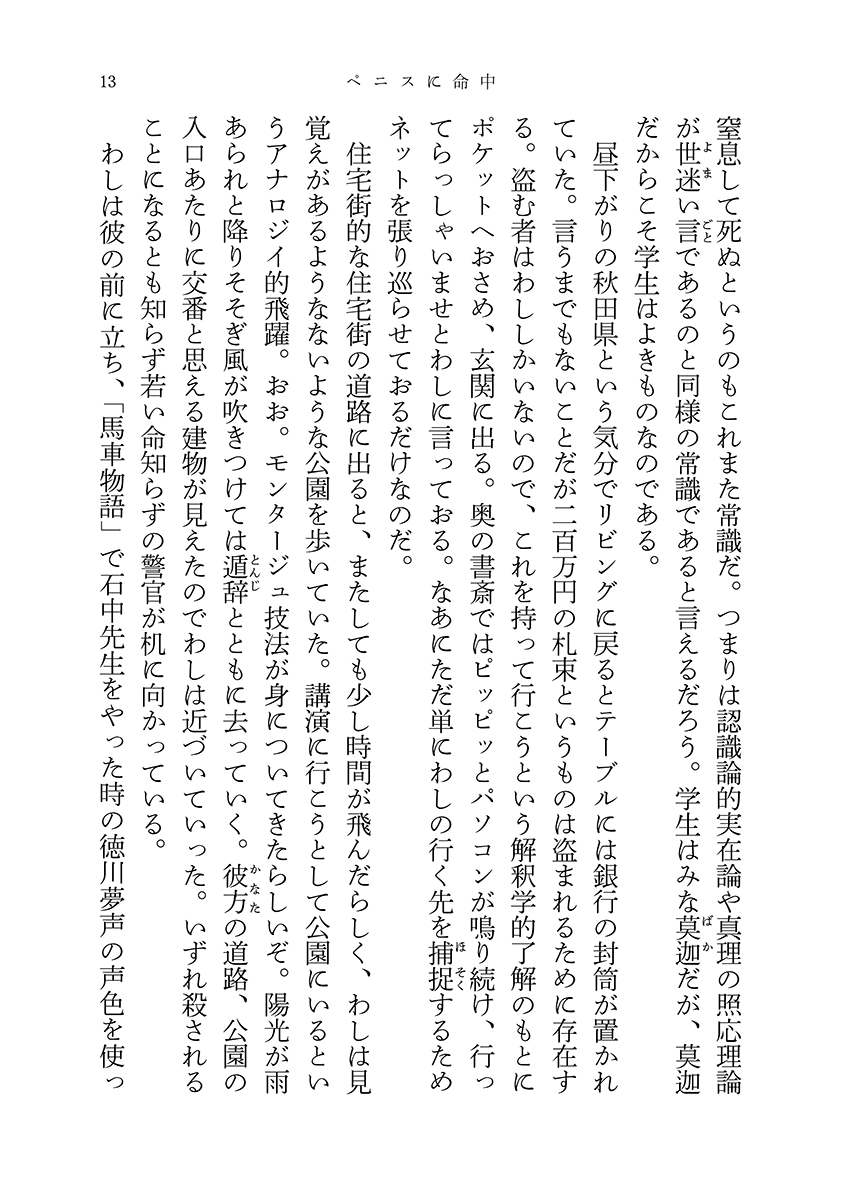 13
ペニスに命中
窒息して死ぬというのもこれまた常識だ。つまりは認識論的実在論や真理の照応理論
が世迷い言であるのと同様の常識であると言えるだろう。学生はみな莫迦だが、莫迦
だからこそ学生はよきものなのである。
昼下がりの秋田県という気分でリビングに戻るとテーブルには銀行の封筒が置かれ
ていた。言うまでもないことだが二百万円の札束というものは盗まれるために存在す
る。盗む者はわししかいないので、これを持って行こうという解釈学的了解のもとに
ポケットへおさめ、玄関に出る。奥の書斎ではピッピッとパソコンが鳴り続け、行っ
てらっしゃいませとわしに言っておる。なあにただ単にわしの行く先を捕捉するため
ネットを張り巡らせておるだけなのだ。
住宅街的な住宅街の道路に出ると、またしても少し時間が飛んだらしく、わしは見
覚えがあるようなないような公園を歩いていた。講演に行こうとして公園にいるとい
うアナロジイ的飛躍。おお。モンタージュ技法が身についてきたらしいぞ。陽光が雨
あられと降りそそぎ風が吹きつけては遁辞とともに去っていく。彼方の道路、公園の
入口あたりに交番と思える建物が見えたのでわしは近づいていった。いずれ殺される
ことになるとも知らず若い命知らずの警官が机に向かっている。
わしは彼の前に立ち、「馬車物語」で石中先生をやった時の徳川夢声の声色を使っ